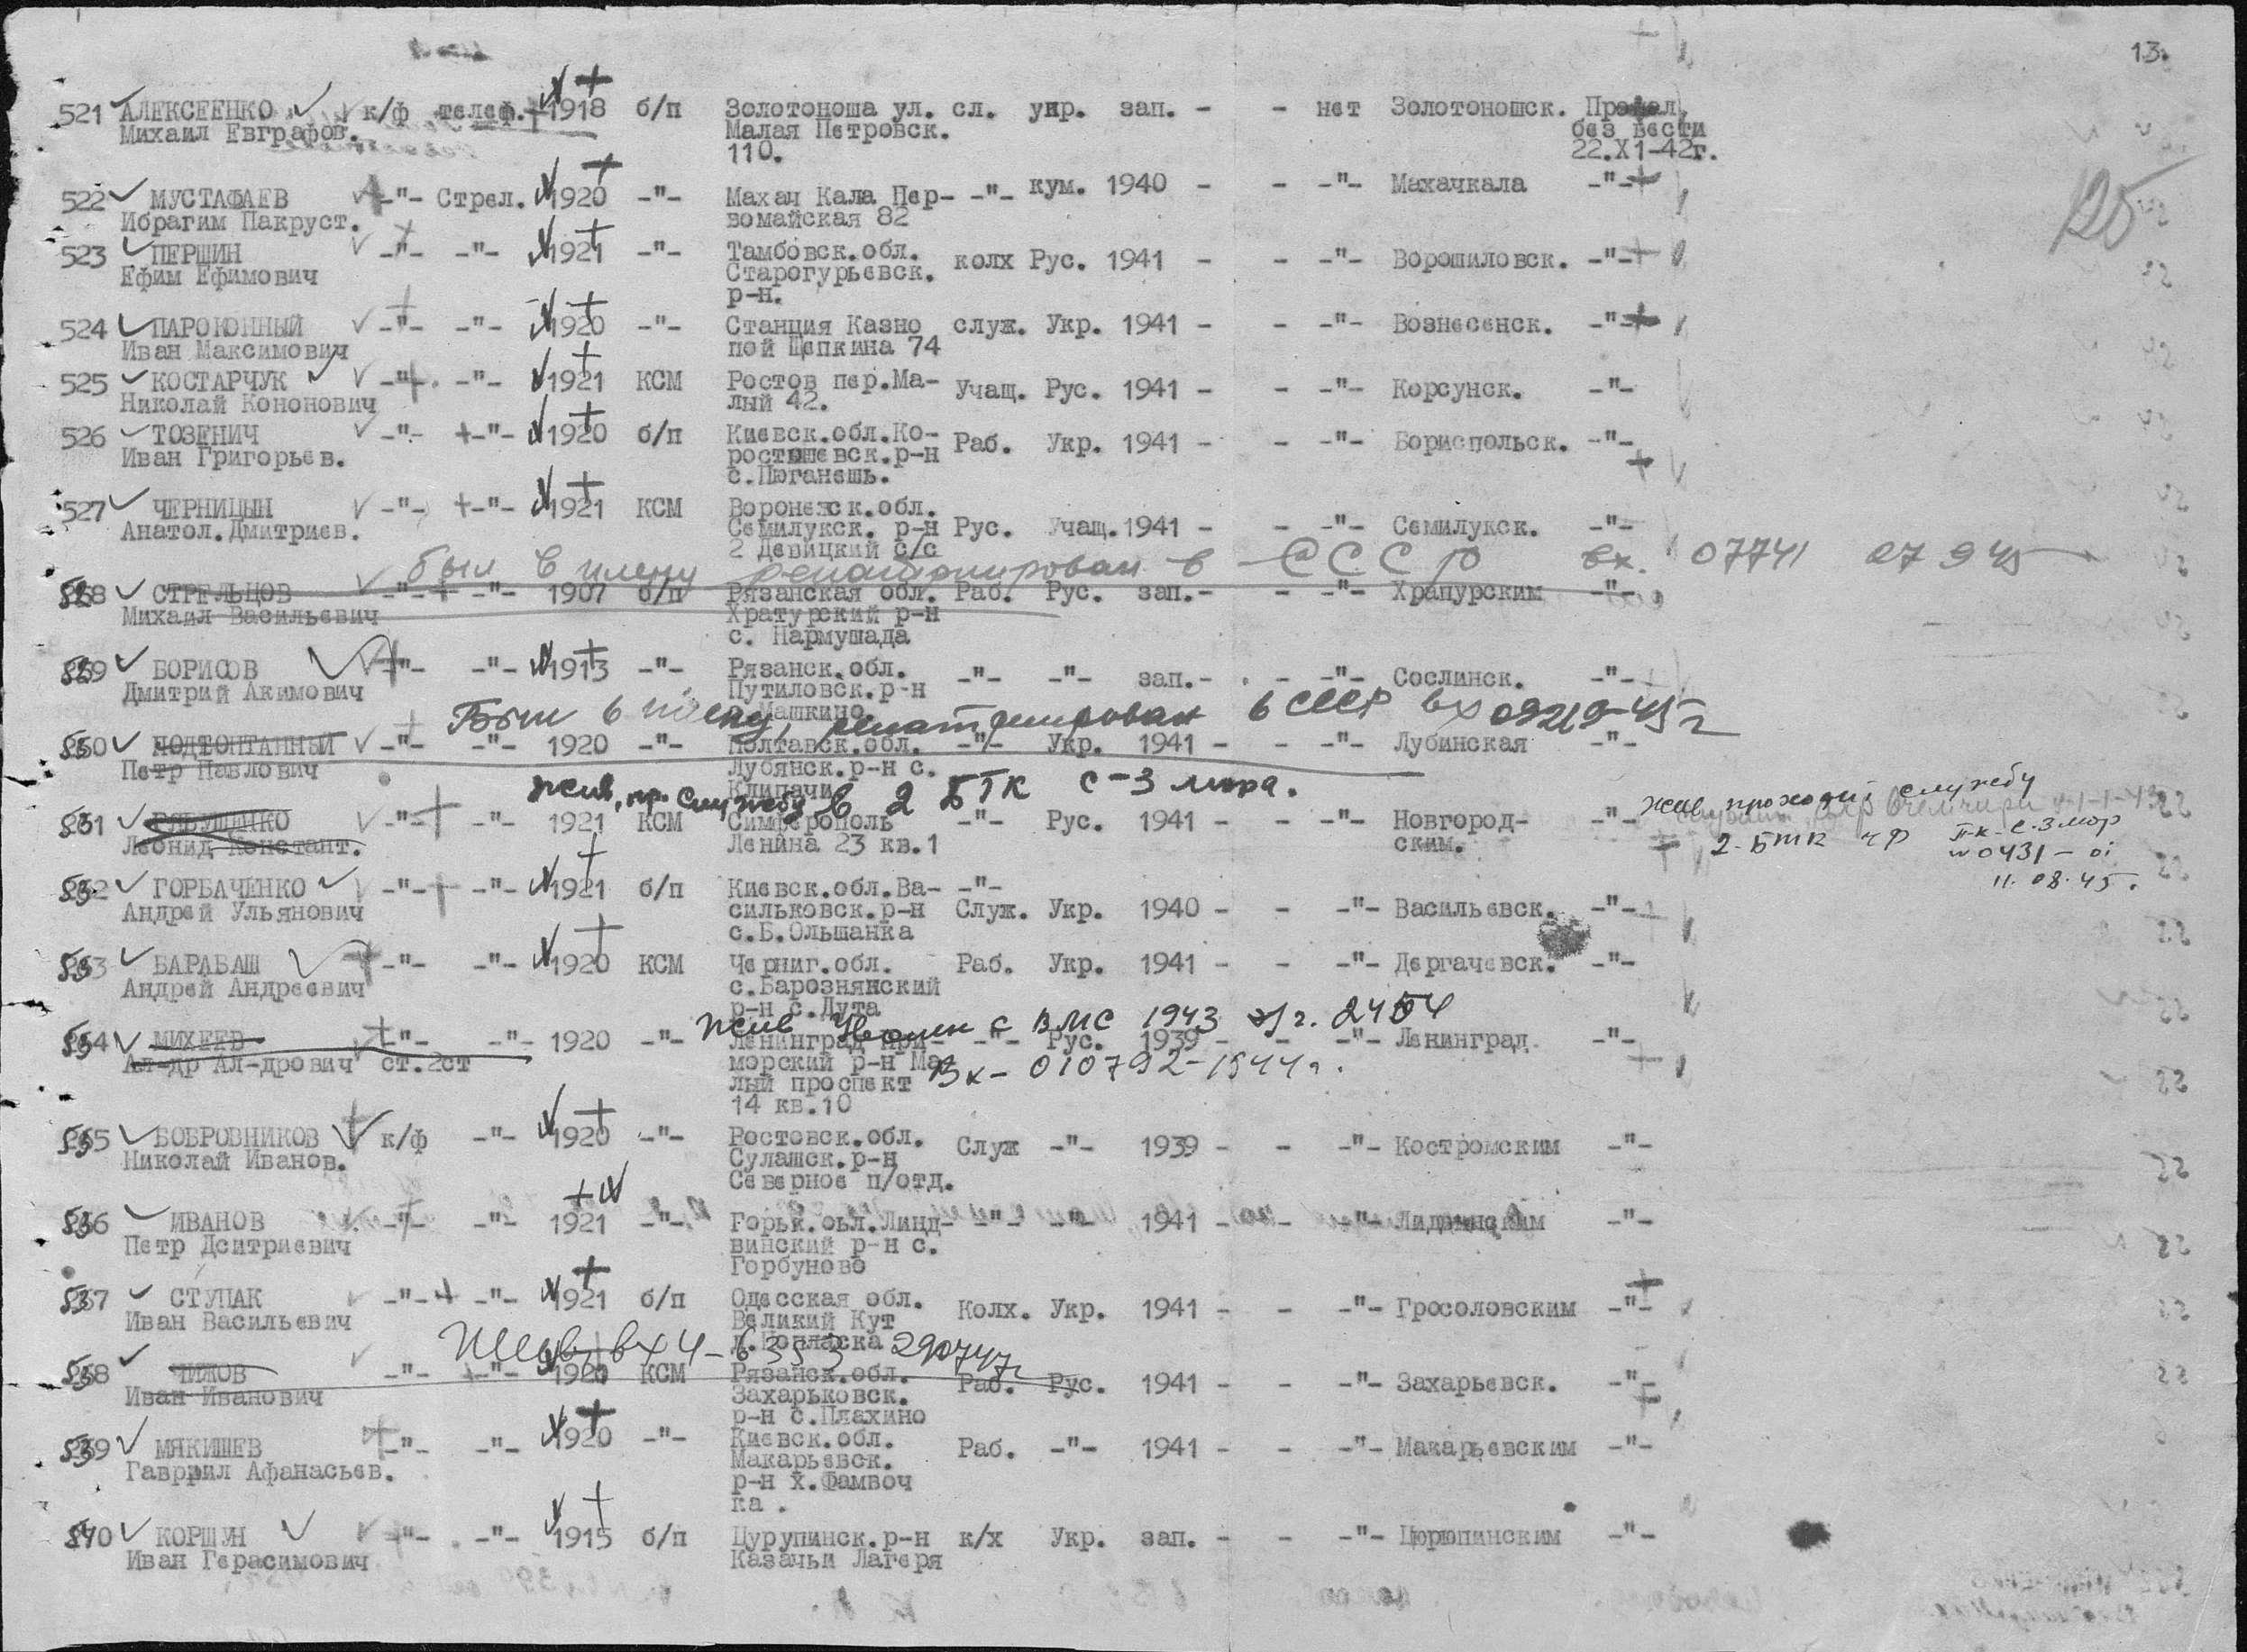 13.
521 АЛЕКСЕЕНКО к/ф телеф. 1918 б/п Золотоноша ул. сл. укр. зап. - - нет Золотоношск. Пропал
Михаил Евграфов. Малая Петровск. без вести
110. 22.X1-42г.
522 МУСТАФАЕВ -"- Стрел. 1920 -"- Махач Кала Пер- -"- кум. 1940 - - -"- Махачкала -"-
Ибрагим Пакруст. вомайская 82
523 ПЕРШИН -"- -"- 1921 -"- Тамбовск.обл. колх Рус. 1941 - - -"- Ворошиловск. -"-
Ефим Ефимович Старогурьевск.
р-н.
524 ПАРОКОННЫЙ -"- -"- 1920 -"- Станция Казно служ. Укр. 1941 - - -"- Вознесенск. -"-
Иван Максимович пой Щепкина 74
525 КОСТАРЧУК -"- -"- 1921 КСМ Ростов пер.Ма- Учащ. Рус. 1941 - - -"- Корсунск. -"-
Николай Кононович лый 42.
526 ТОЗЕНИЧ -"- -"- 1920 б/п Киевск.обл.Ко- Раб. Укр. 1941 - - -"- Бориспольск. -"-
Иван Григорьев. ростышевск.р-н
с.Пюганешь.
527 ЧЕРНИЦЫН -"- -"- 1921 КСМ Воронежск.обл.
Анатол.Дмитриев. Семилукск. р-н Рус. Учащ.1941 - - -"- Семилукск. -"-
2 Девицкий с/с
был в плену репатриирован в СССР вх. 07741 27 9 45
528 СТРЕЛЬЦОВ -"- -"- 1907 б/п Рязанская обл. Раб. Рус. зап.- - -"- Храпурским -"-
Михаил Васильевич Хратурский р-н
с. Пармушада
529 БОРИСОВ -"- -"- 1913 -"- Рязанск.обл. -"- -"- зап.- - -"- Сослинск. -"-
Дмитрий Акимович Путиловск.р-н
Машкино
Был в плену, репатриирован в СССР вх 09219-45г
530 ПОДТОПТАННЫЙ -"- -"- 1920 -"- Полтавск.обл. -"- Укр. 1941 - - -"- Лубинская -"-
Петр Павлович Лубянск.р-н с.
Клипачи
жив, пр. службу в 2 БТК с-3 мора.
531 РЯБУШЕНКО -"- -"- 1921 КСМ Симферополь -"- Рус. 1941 - - -"- Новгород- -"- жив проходит службу
Леонид Констант. Ленина 23 кв.1 ским. 2-БТК ЧФ
11.08.45.
532 ГОРБАЧЕНКО -"- -"- 1921 б/п Киевск.обл.Ва- -"-
Андрей Ульянович сильковск.р-н Служ. Укр. 1940 - - -"- Васильевск. -"-
с.Б.Ольшанка
533 БАРАБАШ -"- -"- 1920 КСМ Черниг.обл. Раб. Укр. 1941 - - -"- Дергачевск. -"-
Андрей Андреевич с.Барознянский
р-н с.Лута
жив с ВМС 1943 2454
534 МИХЕЕВ -"- -"- 1920 -"- Ленинград При- -"- Рус. 1939 - - -"- Ленинград. -"-
Ал-др Ал-дрович ст.2ст морский р-н Ма
Вх- 010792-1944г.
лый проспект
14 кв.10
535 БОБРОВНИКОВ к/ф -"- 1920 -"- Ростовск.обл. Служ -"- 1939 - - -"- Костромским -"-
Николай Иванов. Сулашск.р-н
Северное п/отд.
536 ИВАНОВ -"- -"- 1921 -"- Горьк.оьл.Линд- -"- -"- 1941 - - -"- -"-
Петр Дситриевич винский р-н с.
Горбуново
537 СТУПАК -"- -"- 1921 б/п Одесская обл. Колх. Укр. 1941 - - -"- Гросоловским -"-
Иван Васильевич Великий Кут
Жив, вх 4-6353 290747г
538 ЧИЖОВ -"- -"- 1920 КСМ Рязанск.обл. Раб. Рус. 1941 - - -"- Захарьевск. -"-
Иван Иванович Захарьковск.
р-н с.Плахино
539 МЯКИШЕВ -"- -"- 1920 -"- Киевск.обл. Раб. -"- 1941 - - -"- Макарьевским -"-
Гаврриил Афанасьев. Макарьевск.
р-н х.Фамвоч
ка .
540 КОРШУН -"- -"- 1915 б/п Цурупинск.р-н к/х Укр. зап. - - -"- Цюрюпинским -"-
Иван Герасимович Казачьи Лагеря